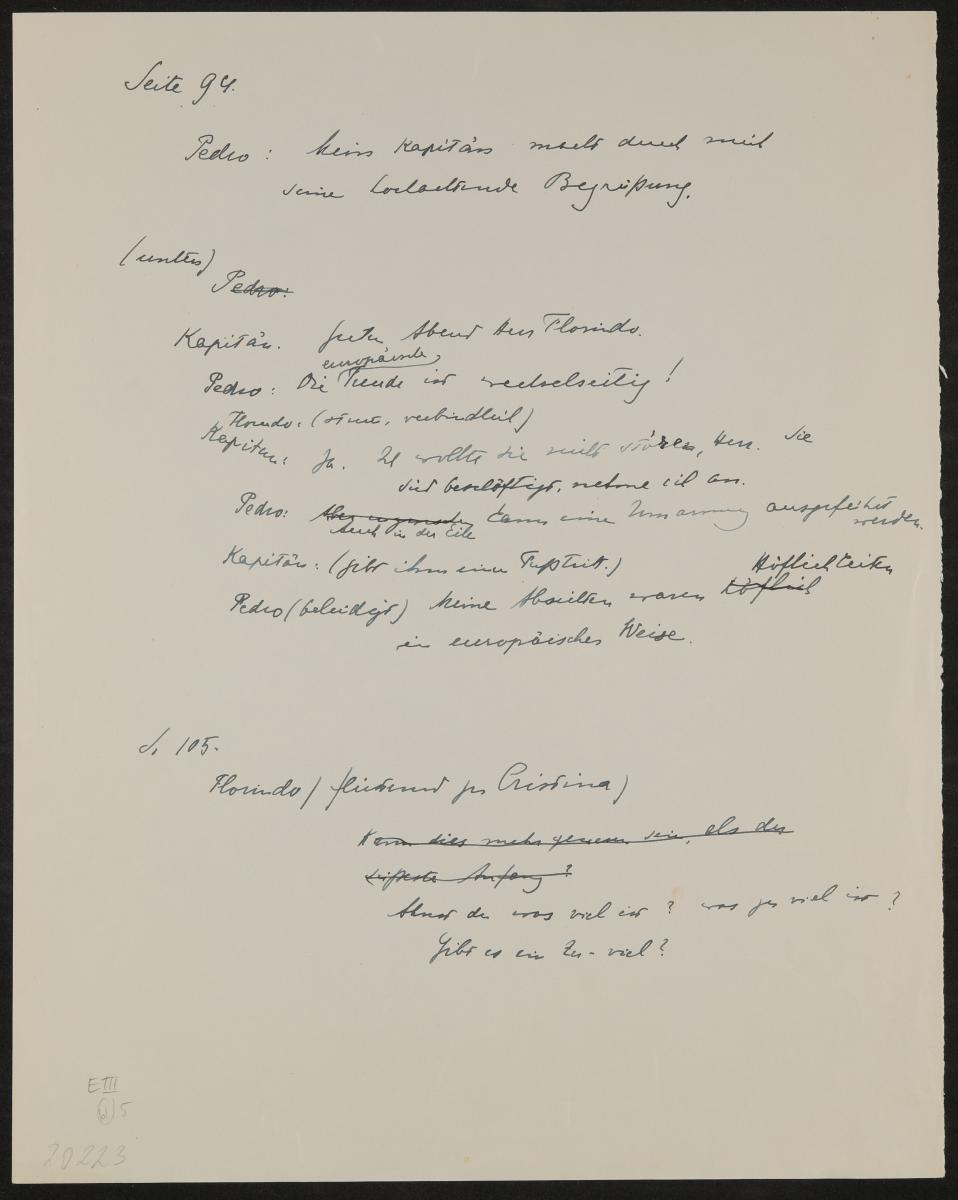 Seite 94.
Pedro: Mein Kapitän macht durch mich
seine hochachtende Begrüßung.
(unten)
Pedro:
Kapitän. Guten Abend Herr Florindo.
europäische
Pedro: Die Freude ist wechselseitig!
Florindo: (stumm, verbindlich)
Kapitän: Ja. Ich wollte Sie nicht stören, Herr. Sie
sind beschäftigt, nehme ich an.
Pedro: kann eine Umarmung ausgeführt
Auch in der Eile
werden.
Kapitän: (gibt ihm einen Fußtritt.)
Höflichkeiten
Pedro (beleidigt) Meine Absichten waren höflich
in europäischer Weise.
S. 105.
Florindo (flüsternd zu Cristina)
Kann dies mehr gewesen sein, als der
süßeste Anfang?
Ahnst du was viel ist? was zu viel ist?
Gibt es ein Zu-viel?
EIII
5
20223